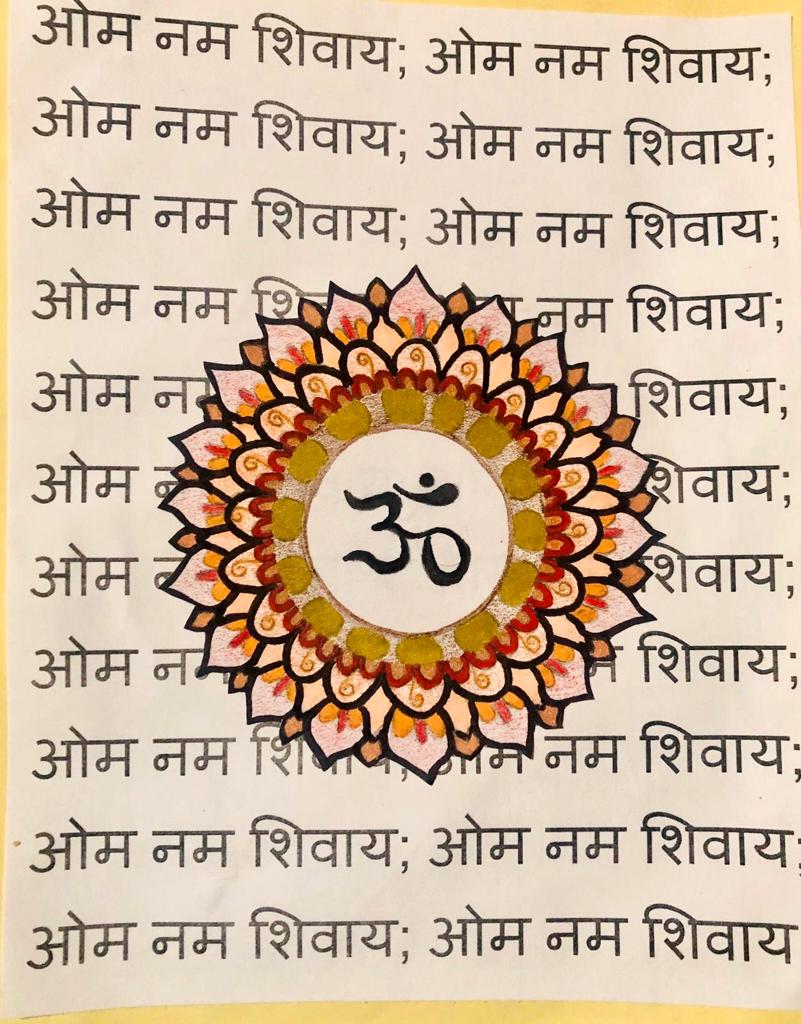 ओम नम शिवाय; ओम नम शिवाय;
ओम नम शिवाय; ओम नम शिवाय;
ओम नम शिवाय; ओम नम शिवाय;
ओम नम नम शिवाय;
ओम शिवाय;
ओम शिवाय;
ॐ
ओम शिवाय;
ओम शिवाय;
ओम नम शिवाय; ओम नम शिवाय;
ओम नम शिवाय; ओम नम शिवाय;
ओम नम शिवाय; ओम नम शिवाय